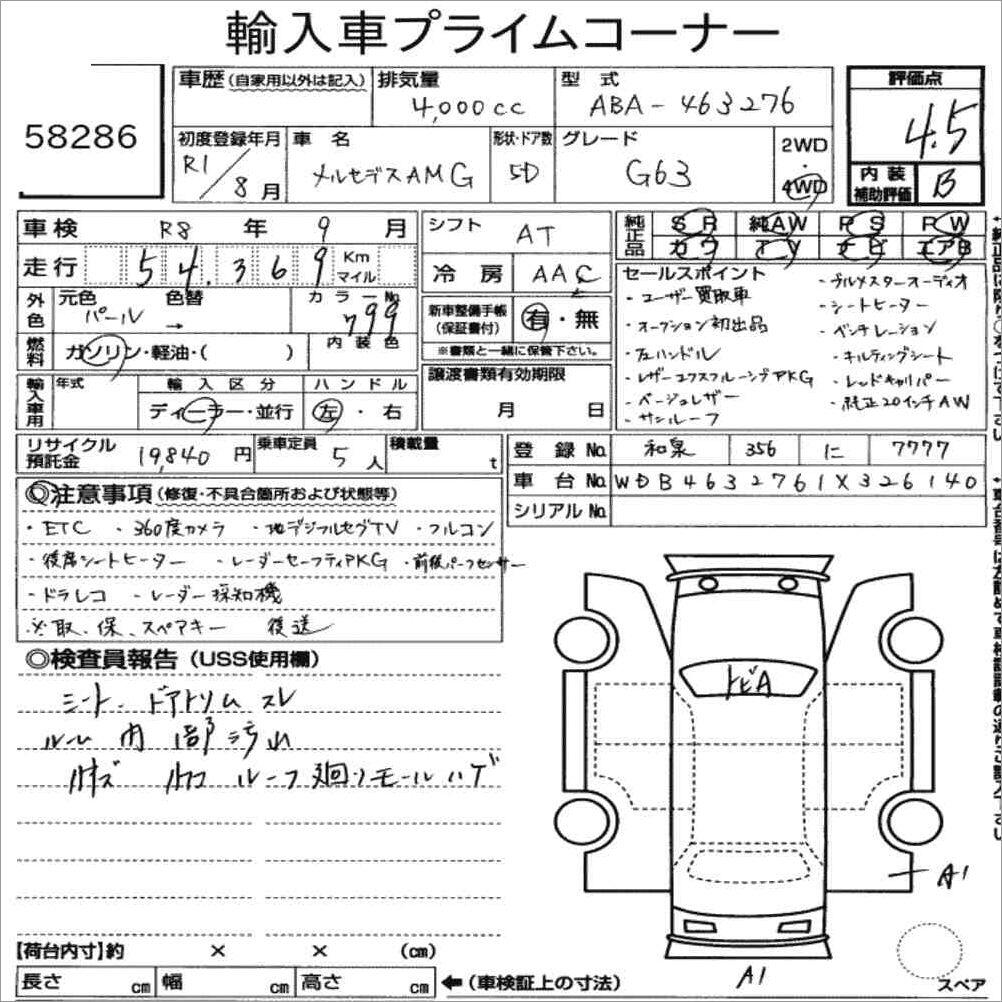 輸入車プライムコーナー
58286
車歴 (自家用以外は記入)
排気量 4,000cc
型式 ABA-463276
評価点 4.5
初度登録年月 R1/8月
車名 メルセデスAMG
形状・ドア数 5D
グレード G63
2WD・4WD
内装補助評価 B
車検 R8年 9月
シフト AT
純正品 SR 純AW PS PW
カワ TV ナビ エアB
走行 54,369 Km マイル
冷房 AAC
外色 元色 パール → 色替 カラーNo. 799
内装色
新車整備手帳(保証書付) 有・無
※書類と一緒に保管下さい。
燃料 ガソリン・軽油・( )
セールスポイント
・ユーザー買取車
・オークション初出品
・左ハンドル
・レザーエクスクルーシブPKG
・ベージュレザー
・サンルーフ
・ブルメスターオーディオ
・シートヒーター
・ベンチレーション
・キルティングシート
・レッドキャリパー
・純正20インチAW
輸入車用 年式 輸入区分 ディーラー・並行
ハンドル 左・右
譲渡書類有効期限 月 日
リサイクル預託金 19,840円
乗車定員 5人
積載量 t
登録No. 和泉 356 に 7777
車台No. WDB4632761X326140
シリアルNo.
◎注意事項 (修復・不具合箇所および状態等)
・ETC ・360度カメラ ・地デジフルセグTV ・フルコン
・後席シートヒーター ・レーダーセーフティPKG ・前後パークセンサー
・ドラレコ ・レーダー探知機
※取、保、スペアキー 後送
◎検査員報告 (USS使用欄)
シート、ドアトリム スレ
ルーム内 1部汚れ
小キズ 小凹 ルーフ廻りモールハゲ
トビA
A1
A1
スペア
【荷台内寸】約 × × (cm)
長さ cm 幅 cm 高さ cm ←(車検証上の寸法)